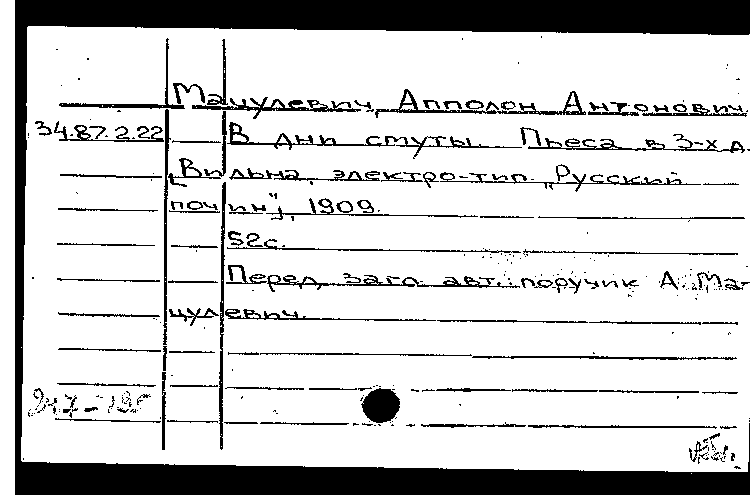 Мацулевич, Апполон Антонович.
34.87.2.22 В дни смуты. Пьеса в 3-х д.
[Вильна, электро-тип. "Русский
почин"], 1909.
52с.
Перед загл. авт.: поручик А. Ма-
цулевич.